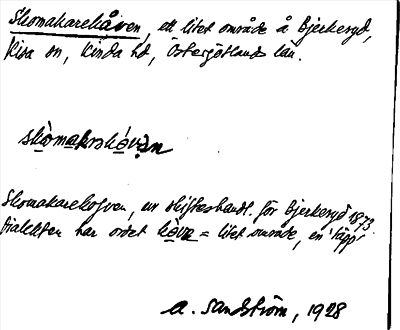 Skomakarehåven, ett litet område å Bjerkeryd,
Kisa sn, Kinda hd, Östergötlands län.
skomakrəhovən
Skomakarehofven, ur skifteshandl. för Bjerkeryd 1873.
Dialekten har ordet = litet område, en 'täpp'
A. Sandström, 1928